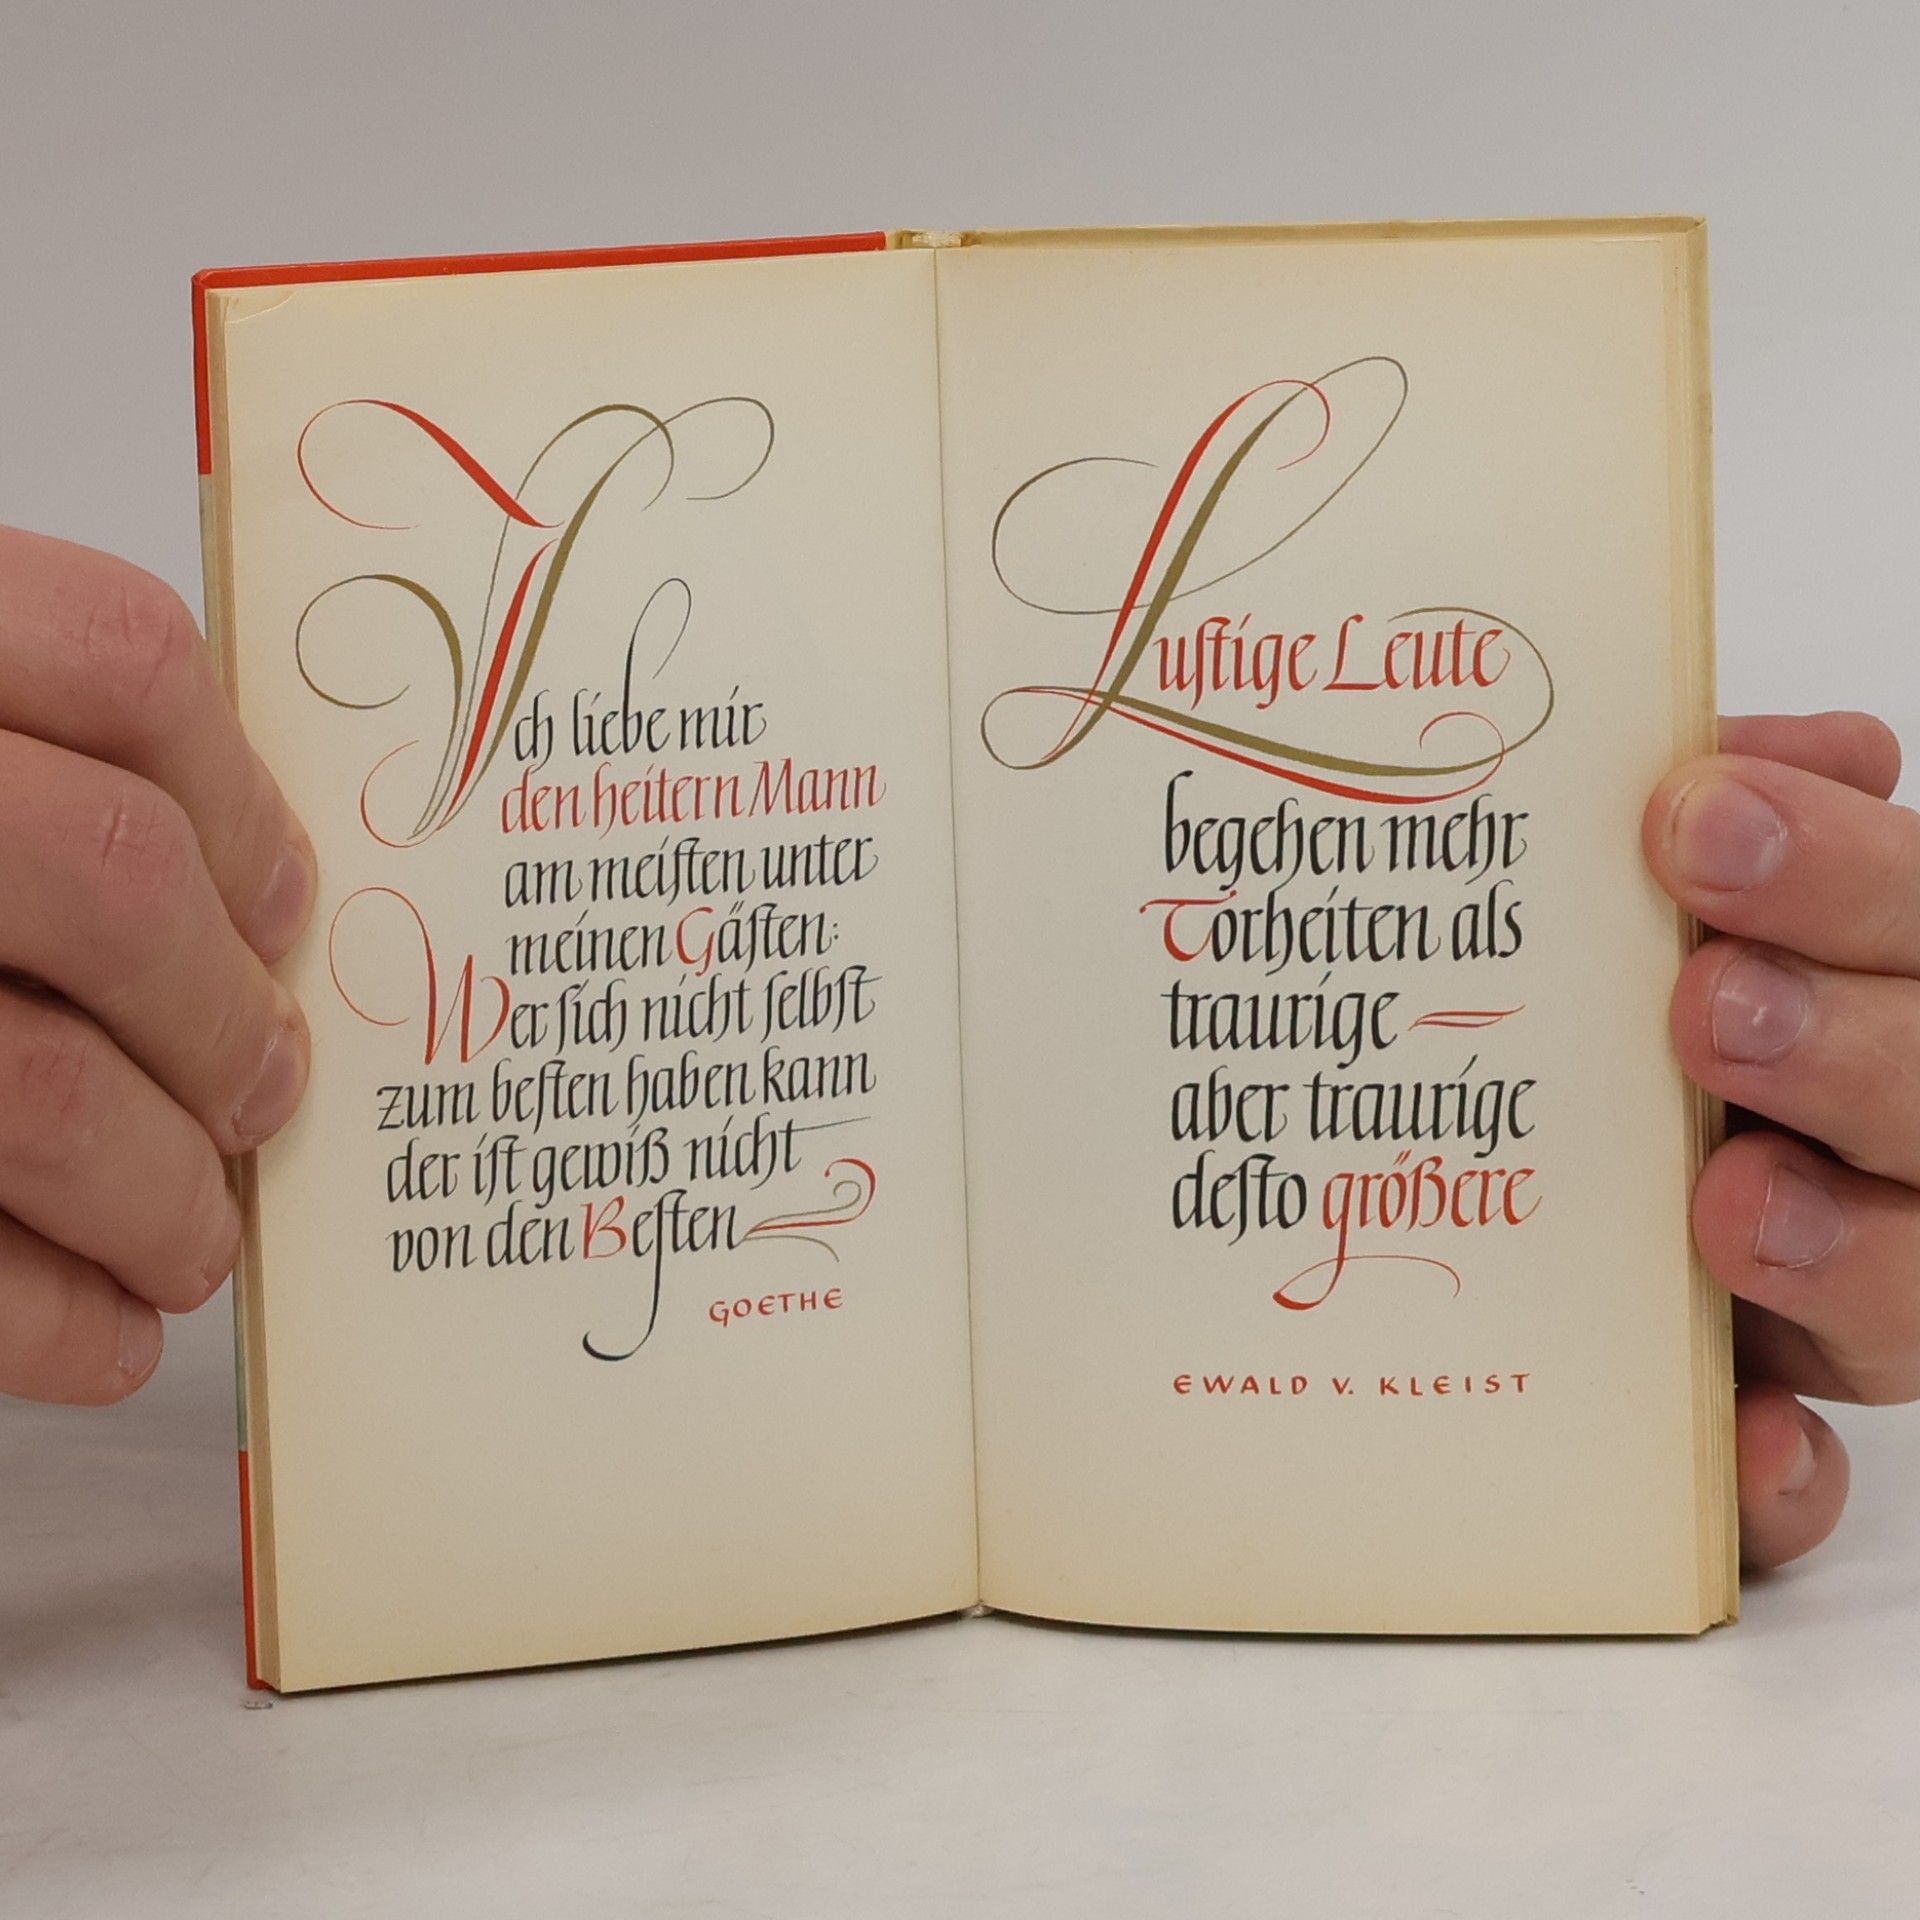 Ich liebe mir
den heitern Mann
am meiſten unter
meinen Gäſten:
Wer ſich nicht ſelbſt
zum beſten haben kann
der iſt gewiß nicht
von den Beſten
GOETHE
Luſtige Leute
begehen mehr
Torheiten als
traurige —
aber traurige
deſto größere
EWALD V. KLEIST